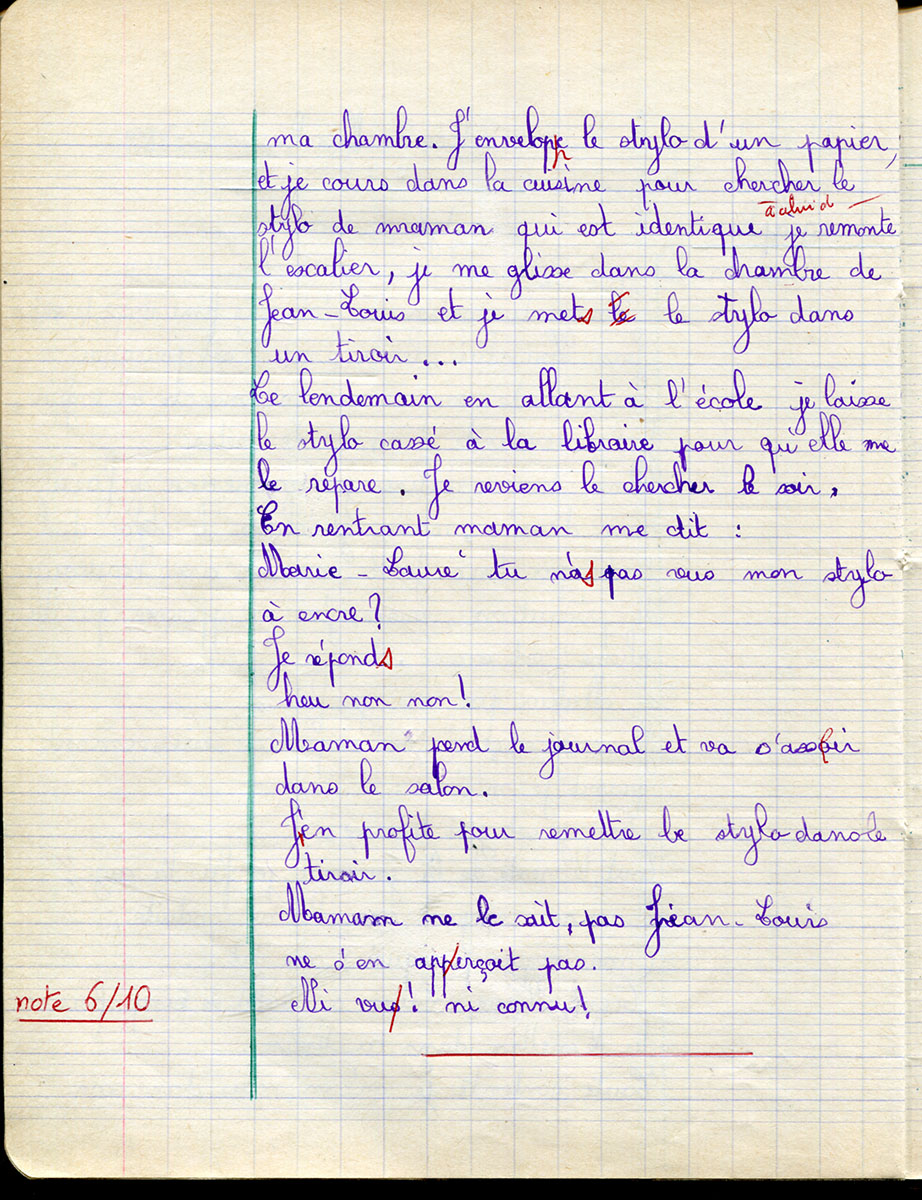 ma chambre. J'envelopp le stylo d'un papier,
et je cours dans la cuisine pour chercher le
stylo de maman qui est identique à celui d je remonte
l'escalier, je me glisse dans la chambre de
Jean-Louis et je mets le le stylo dans
un tiroir...
Le lendemain en allant à l'école je laisse
le stylo cassé à la libraire pour qu'elle me
le répare. Je reviens le chercher le soir,
En rentrant maman me dit :
Marie-Laure tu n'as pas vus mon stylo
à encre?
Je réponds
heu non non!
Maman perd le journal et va s'assoir
dans le salon.
J'en profite pour remettre le stylo dans le
tiroir.
Maman ne le sait, pas Jean-Louis
ne s'en apperçoit pas.
note 6/10
Ni vus! ni connu!